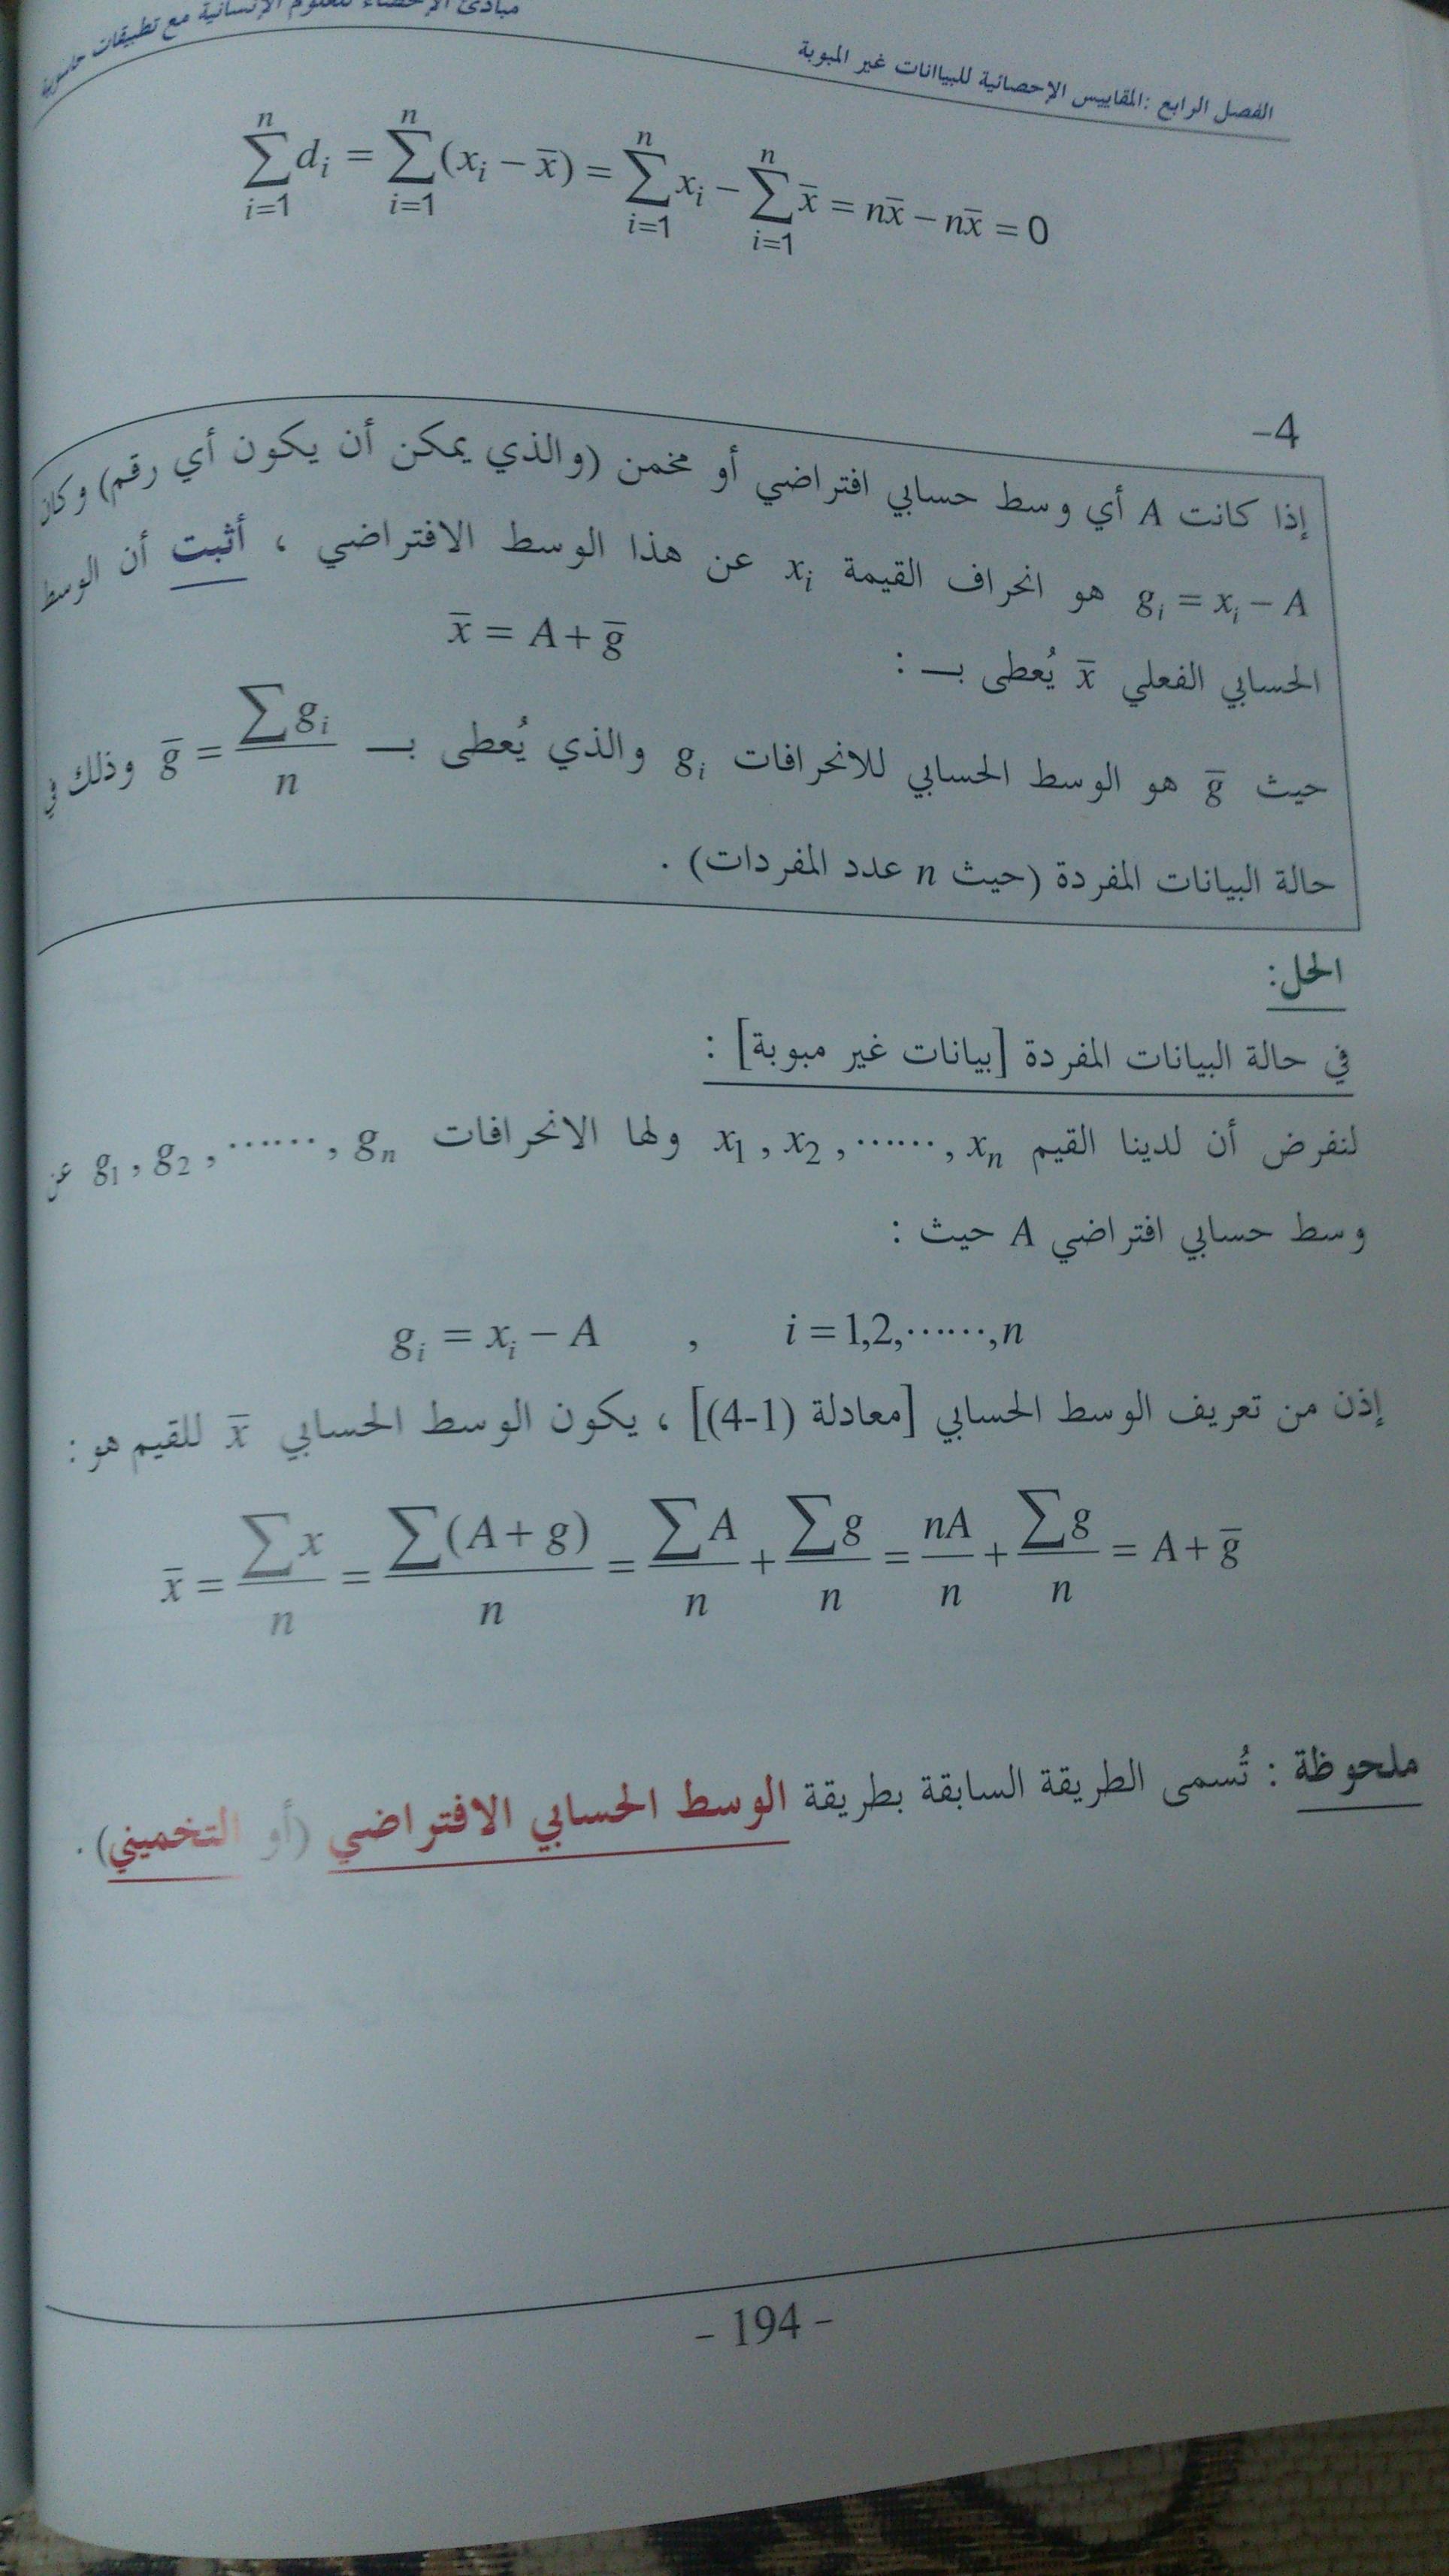 مبادئ الإحصاء للعلوم الإنسانية مع تطبيقات حاسوبية
الفصل الرابع :المقاييس الإحصائية للبياانات غير المبوبة
$\sum_{i=1}^{n} d_i = \sum_{i=1}^{n} (x_i - \bar{x}) = \sum_{i=1}^{n} x_i - \sum_{i=1}^{n} \bar{x} = n\bar{x} - n\bar{x} = 0$
4-
إذا كانت A أي وسط حسابي افتراضي أو مخمن (والذي يمكن أن يكون أي رقم) وكان
$g_i = x_i - A$ هو انحراف القيمة $x_i$ عن هذا الوسط الافتراضي ، أثبت أن الوسط
الحسابي الفعلي $\bar{x}$ يُعطى بـ : $\bar{x} = A + \bar{g}$
حيث $\bar{g}$ هو الوسط الحسابي للانحرافات $g_i$ والذي يُعطى بـ $\bar{g} = \frac{\sum g_i}{n}$ وذلك في
حالة البيانات المفردة (حيث n عدد المفردات) .
الحل:
في حالة البيانات المفردة [بيانات غير مبوبة] :
لنفرض أن لدينا القيم $x_1 , x_2 , \cdots\cdots , x_n$ ولها الانحرافات $g_1 , g_2 , \cdots\cdots , g_n$ عن
وسط حسابي افتراضي A حيث :
$g_i = x_i - A \quad , \quad i = 1,2,\cdots\cdots,n$
إذن من تعريف الوسط الحسابي [معادلة (4-1)] ، يكون الوسط الحسابي $\bar{x}$ للقيم هو :
$\bar{x} = \frac{\sum x}{n} = \frac{\sum (A + g)}{n} = \frac{\sum A}{n} + \frac{\sum g}{n} = \frac{nA}{n} + \frac{\sum g}{n} = A + \bar{g}$
ملحوظة : تُسمى الطريقة السابقة بطريقة الوسط الحسابي الافتراضي (أو التخميني) .
- 194 -